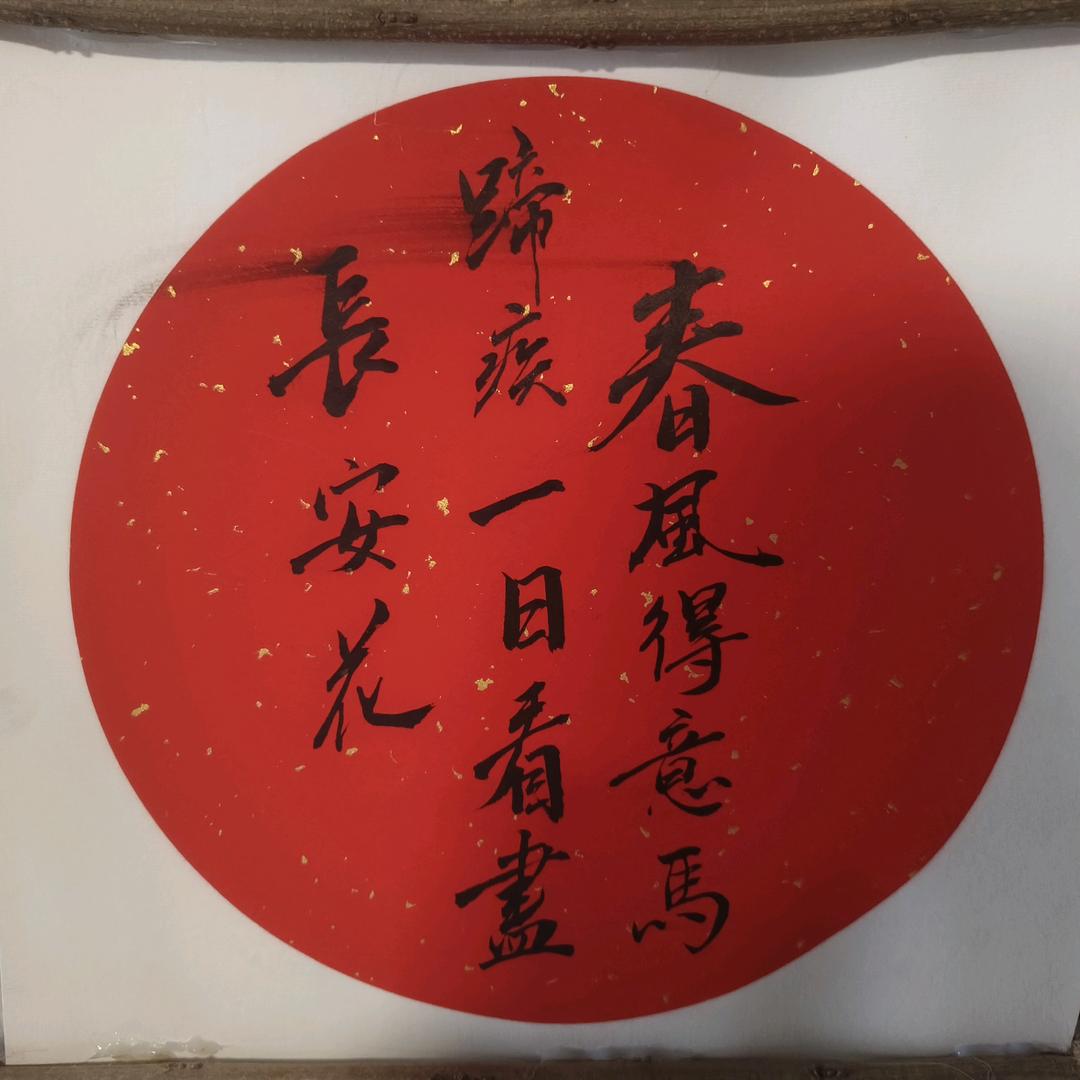 春風得意馬
蹄疾一日看盡
長安花